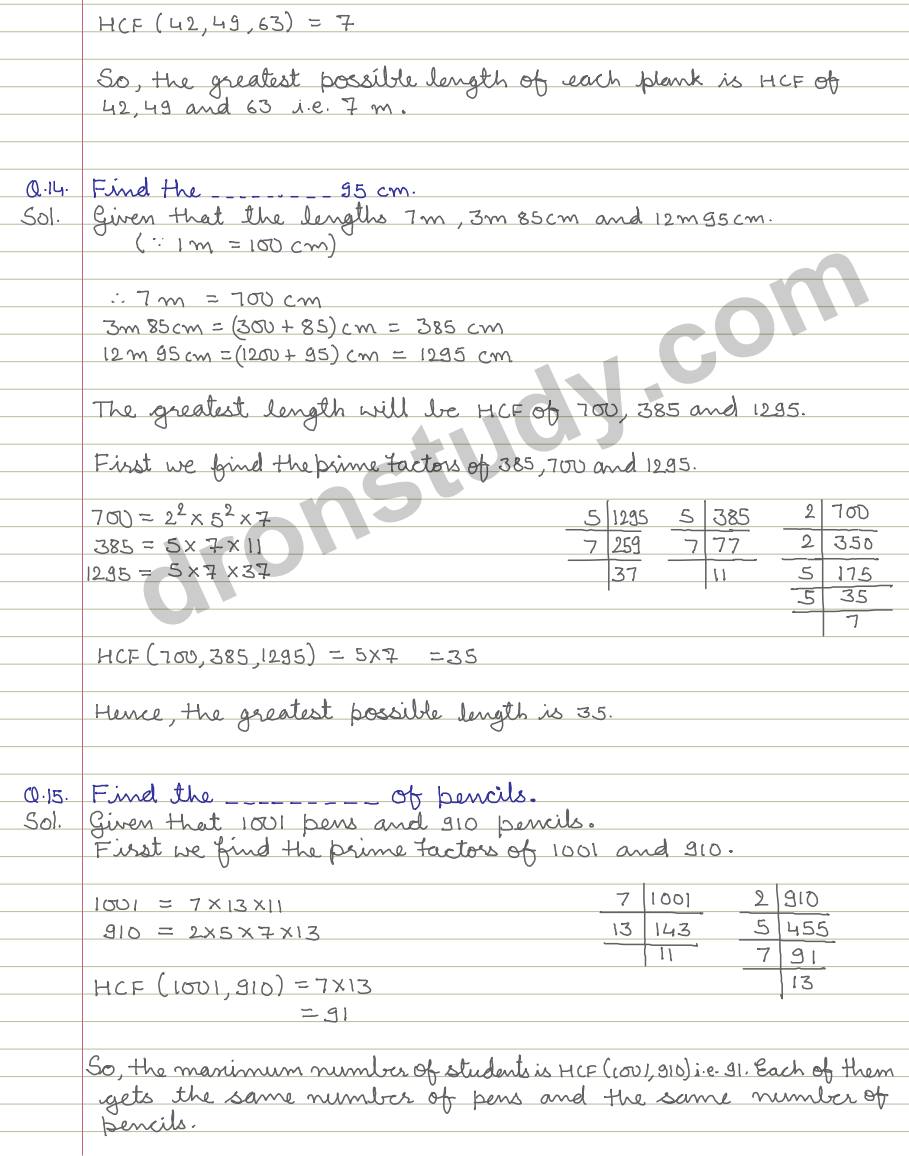 HCF (42, 49, 63) = 7
So, the greatest possible length of each plank is HCF of
42, 49 and 63 i.e. 7 m.
Q.14. Find the _ _ _ _ _ _ _ _ _ 95 cm.
Sol. Given that the lengths 7m, 3m 85cm and 12m 95cm.
(∵ 1m = 100 cm)
∴ 7m = 700 cm
3m 85cm = (300 + 85) cm = 385 cm
12m 95cm = (1200 + 95) cm = 1295 cm
The greatest length will be HCF of 700, 385 and 1295.
First we find the prime factors of 385, 700 and 1295.
700 = 2² × 5² × 7
385 = 5 × 7 × 11
1295 = 5 × 7 × 37
5 | 1295
7 | 259
| 37
5 | 385
7 | 77
| 11
2 | 700
2 | 350
5 | 175
5 | 35
| 7
HCF (700, 385, 1295) = 5×7 = 35
Hence, the greatest possible length is 35.
Q.15. Find the _ _ _ _ _ _ _ _ _ of pencils.
Sol. Given that 1001 pens and 910 pencils.
First we find the prime factors of 1001 and 910.
1001 = 7 × 13 × 11
910 = 2×5×7×13
7 | 1001
13 | 143
| 11
2 | 910
5 | 455
7 | 91
| 13
HCF (1001, 910) = 7×13
= 91
So, the maximum number of students is HCF (1001, 910) i.e. 91. Each of them
gets the same number of pens and the same number of
pencils.
dronstudy.com